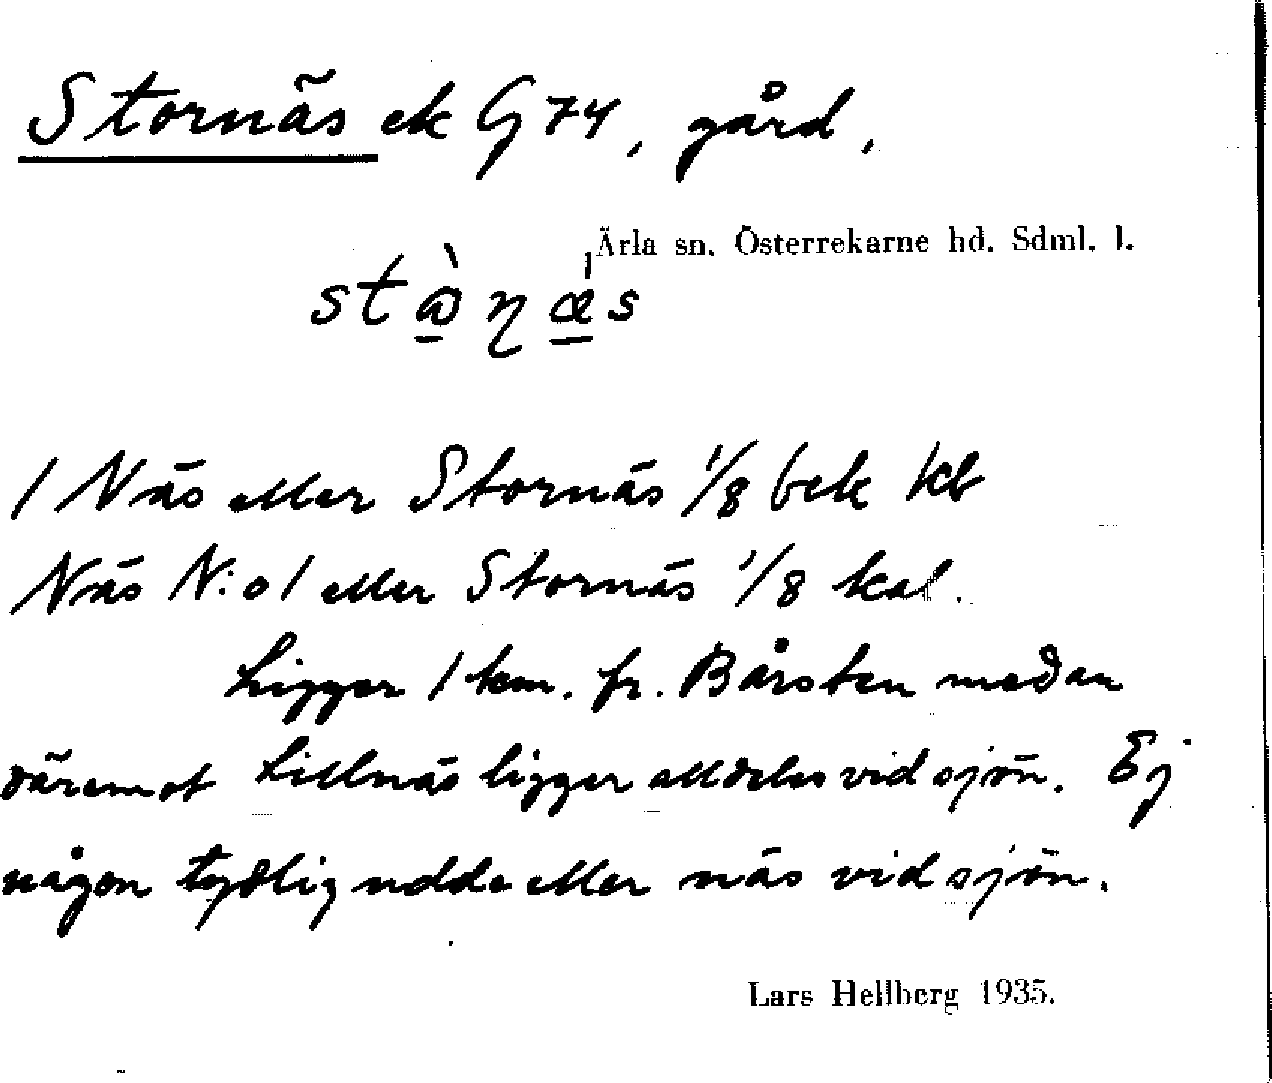 Stornäs ek G 74, gård,
Ärla sn. Österrekarne hd. Sdml. l.
1 Näs eller Stornäs 1/8 bek kb
Näs N:o 1 eller Stornäs 1/8 kal.
Ligger 1 km. fr. Bårsten medan
däremot Lillnäs ligger alldeles vid sjön. Ej
någon tydlig udde eller näs vid sjön.
Lars Hellberg 1935.